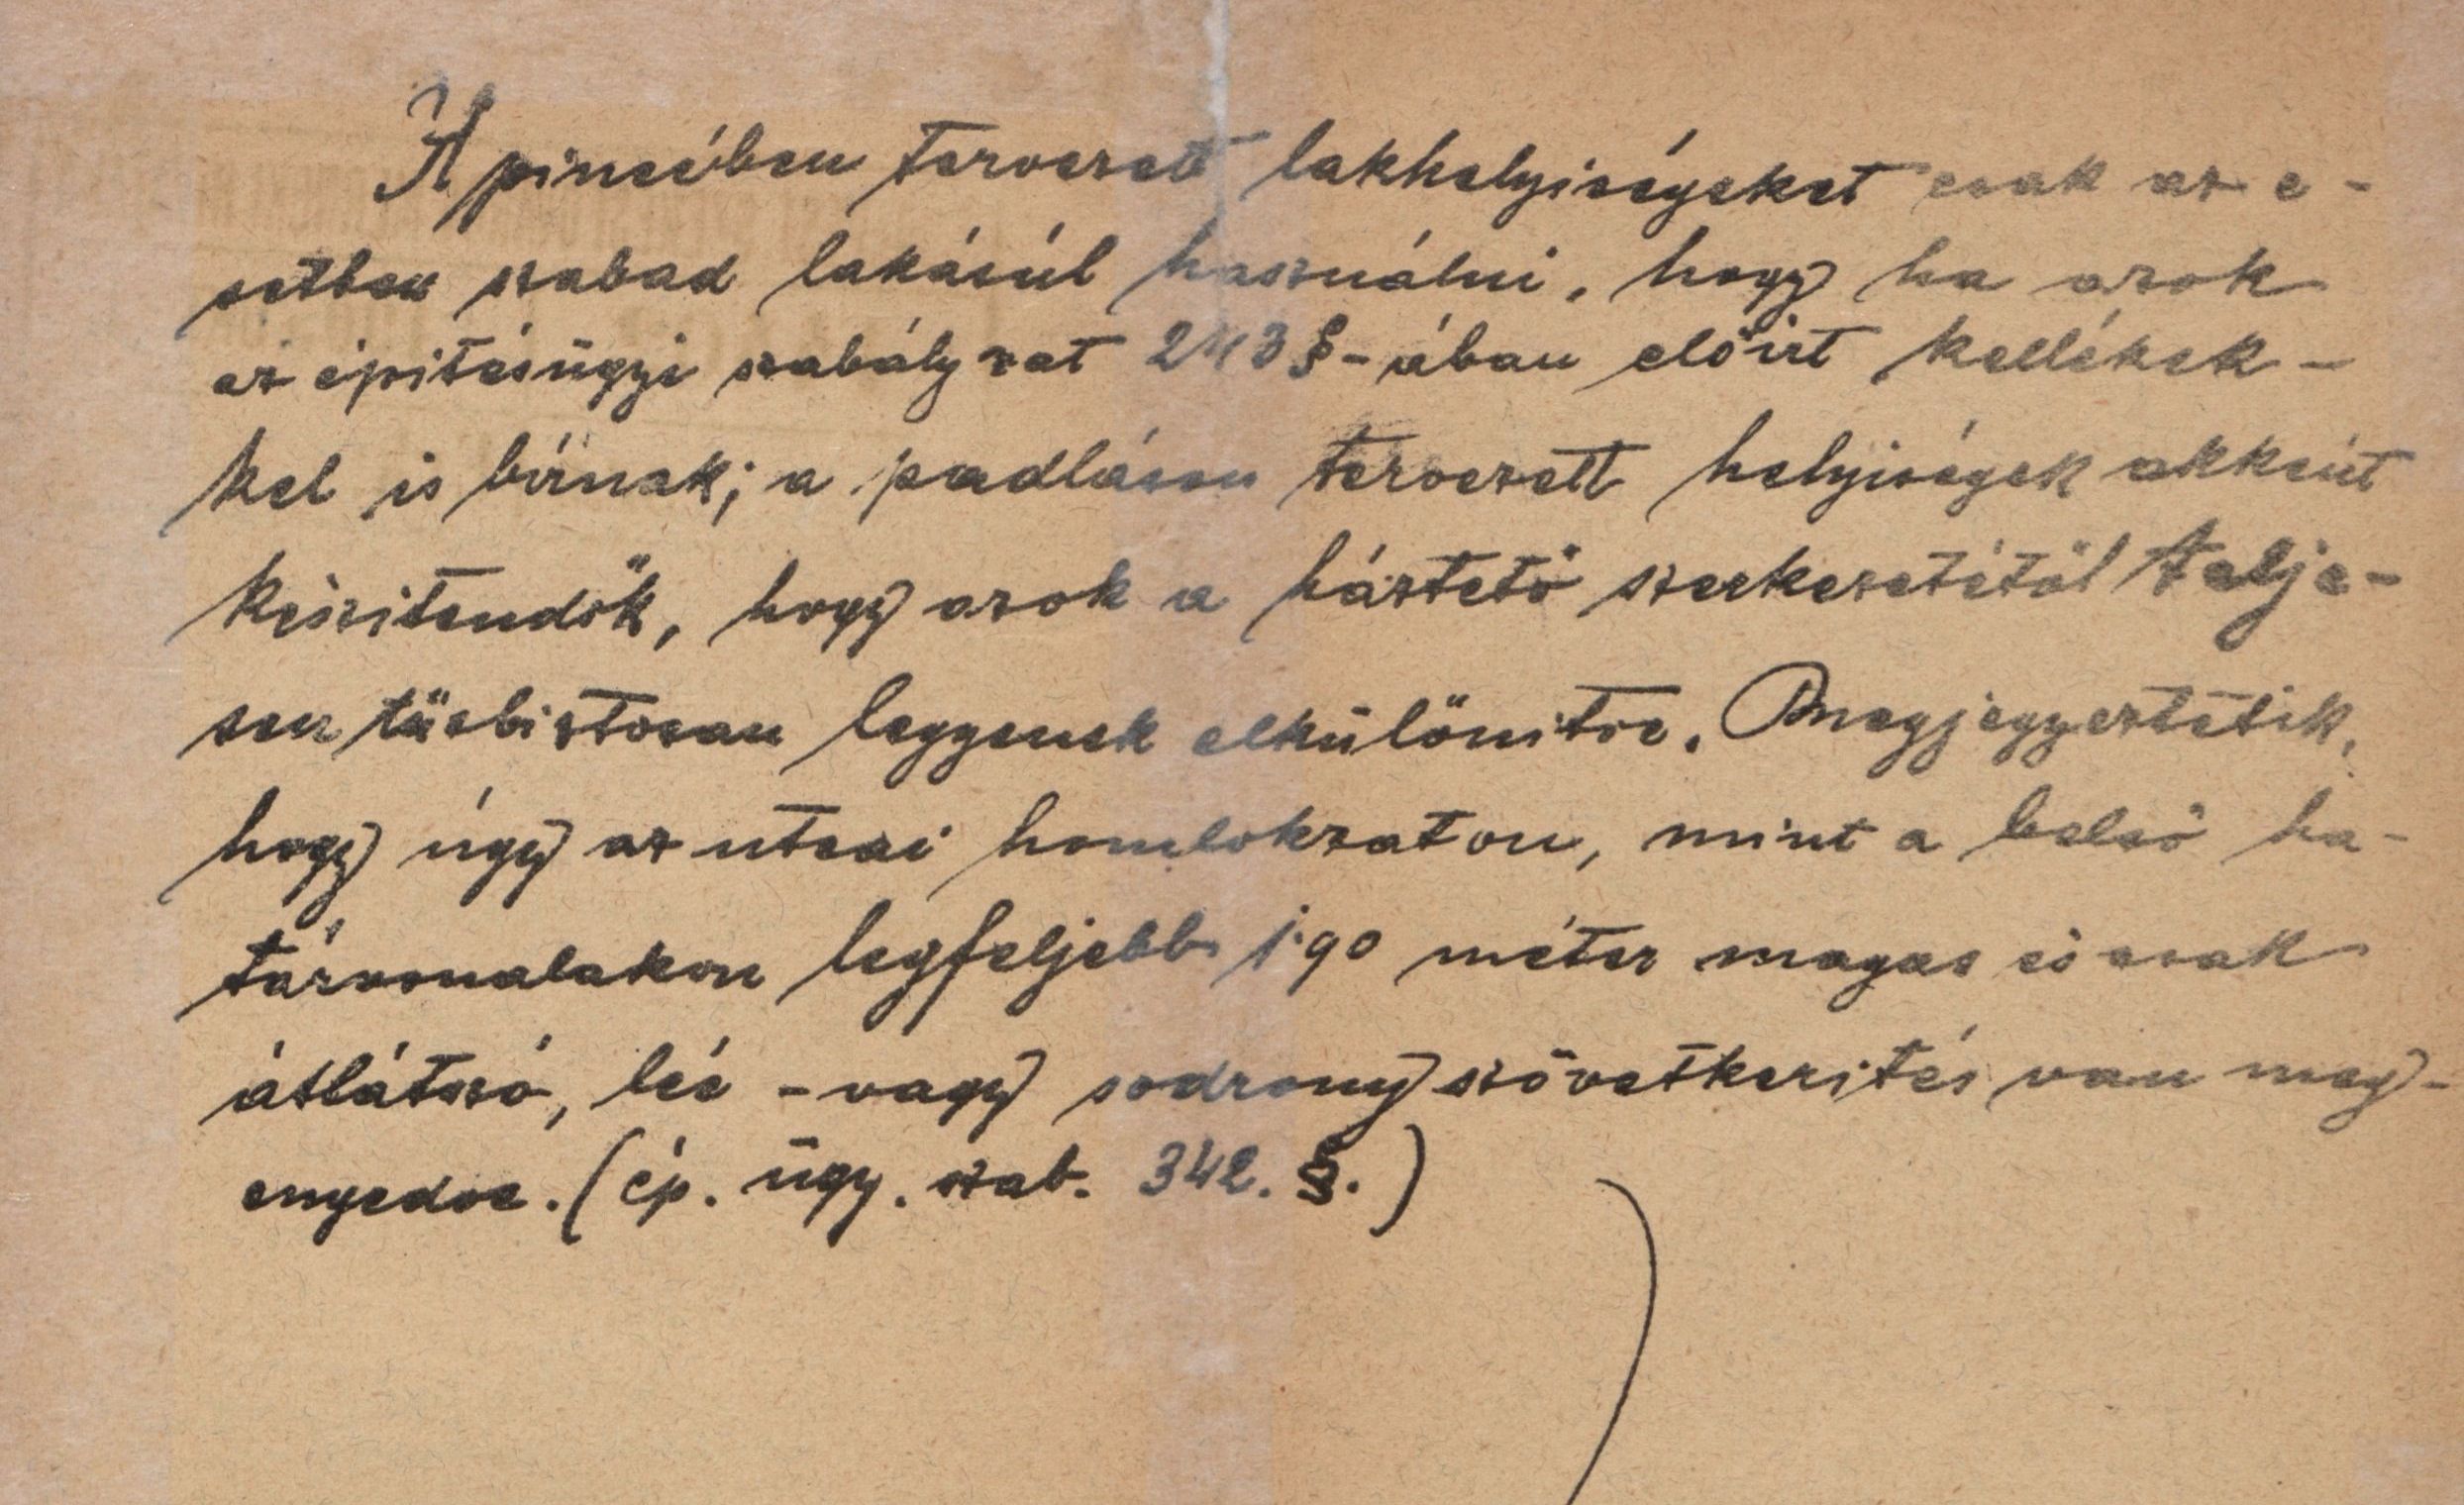 A pincében tervezett lakhelyiségeket csak az e-
setben szabad lakásúl használni, hogy ha azok
az épitésügyi szabályzat 243 §-ában előirt kellékek-
kel is birnak; a padláson tervezett helyiségek akként
készitendők, hogy azok a háztető szerkezetétől telje-
sen tűzbiztosan legyenek elkülönitve. Megjegyeztetik,
hogy úgy az utcai homlokzaton, mint a belső ha-
tárvonalakon legfeljebb 1·90 méter magas és csak
átlátszó, léc - vagy sodrony szövetkerités van meg-
engedve. (ép. ügy. szab. 342. §.)